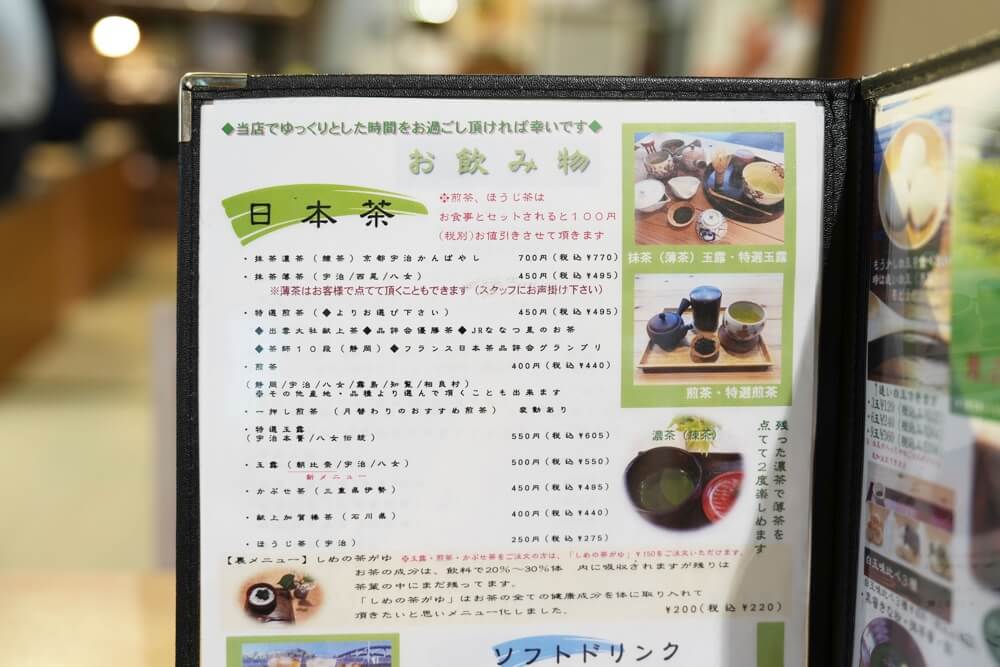 ◆当店でゆっくりとした時間をお過ごし頂ければ幸いです◆
お飲み物
日本茶
※煎茶、ほうじ茶は
お食事とセットされると100円
(税別)お値引きさせて頂きます
・抹茶濃茶(練茶)京都宇治かんばやし 700円(税込¥770)
・抹茶薄茶(宇治/西尾/八女) 450円(税込¥495)
※薄茶はお客様で点てて頂くこともできます(スタッフにお声掛け下さい)
・特選煎茶(◆よりお選び下さい) 450円(税込¥495)
◆出雲大社献上茶◆品評会優勝茶◆JRななつ星のお茶
◆茶師10段(静岡)◆フランス日本茶品評会グランプリ
・煎茶 400円(税込¥440)
(静岡/宇治/八女/霧島/知覧/相良村)
※その他産地・品種より選んで頂くことも出来ます
・一押し煎茶(月替わりのおすすめ煎茶) 変動あり
・特選玉露
(宇治本簀/八女伝統) 550円(税込¥605)
・玉露(朝比奈/宇治/八女) 500円(税込¥550)
新メニュー
・かぶせ茶(三重県伊勢) 450円(税込¥495)
・献上加賀棒茶(石川県) 400円(税込¥440)
・ほうじ茶(宇治) 250円(税込¥275)
【裏メニュー】しめの茶がゆ ※玉露・煎茶・かぶせ茶をご注文の方は、「しめの茶がゆ」¥150をご注文いただけます。
お茶の成分は、飲料で20%~30%体 内に吸収されますが残りは
茶葉の中にまだ残ってます。
「しめの茶がゆ」はお茶の全ての健康成分を体に取り入れて
頂きたいと思いメニュー化しました。 ¥200(税込¥220)
ソフトドリンク
抹茶(薄茶)玉露・特選玉露
煎茶・特選煎茶
濃茶(練茶)
残った濃茶で薄茶を
点てて2度楽しめます